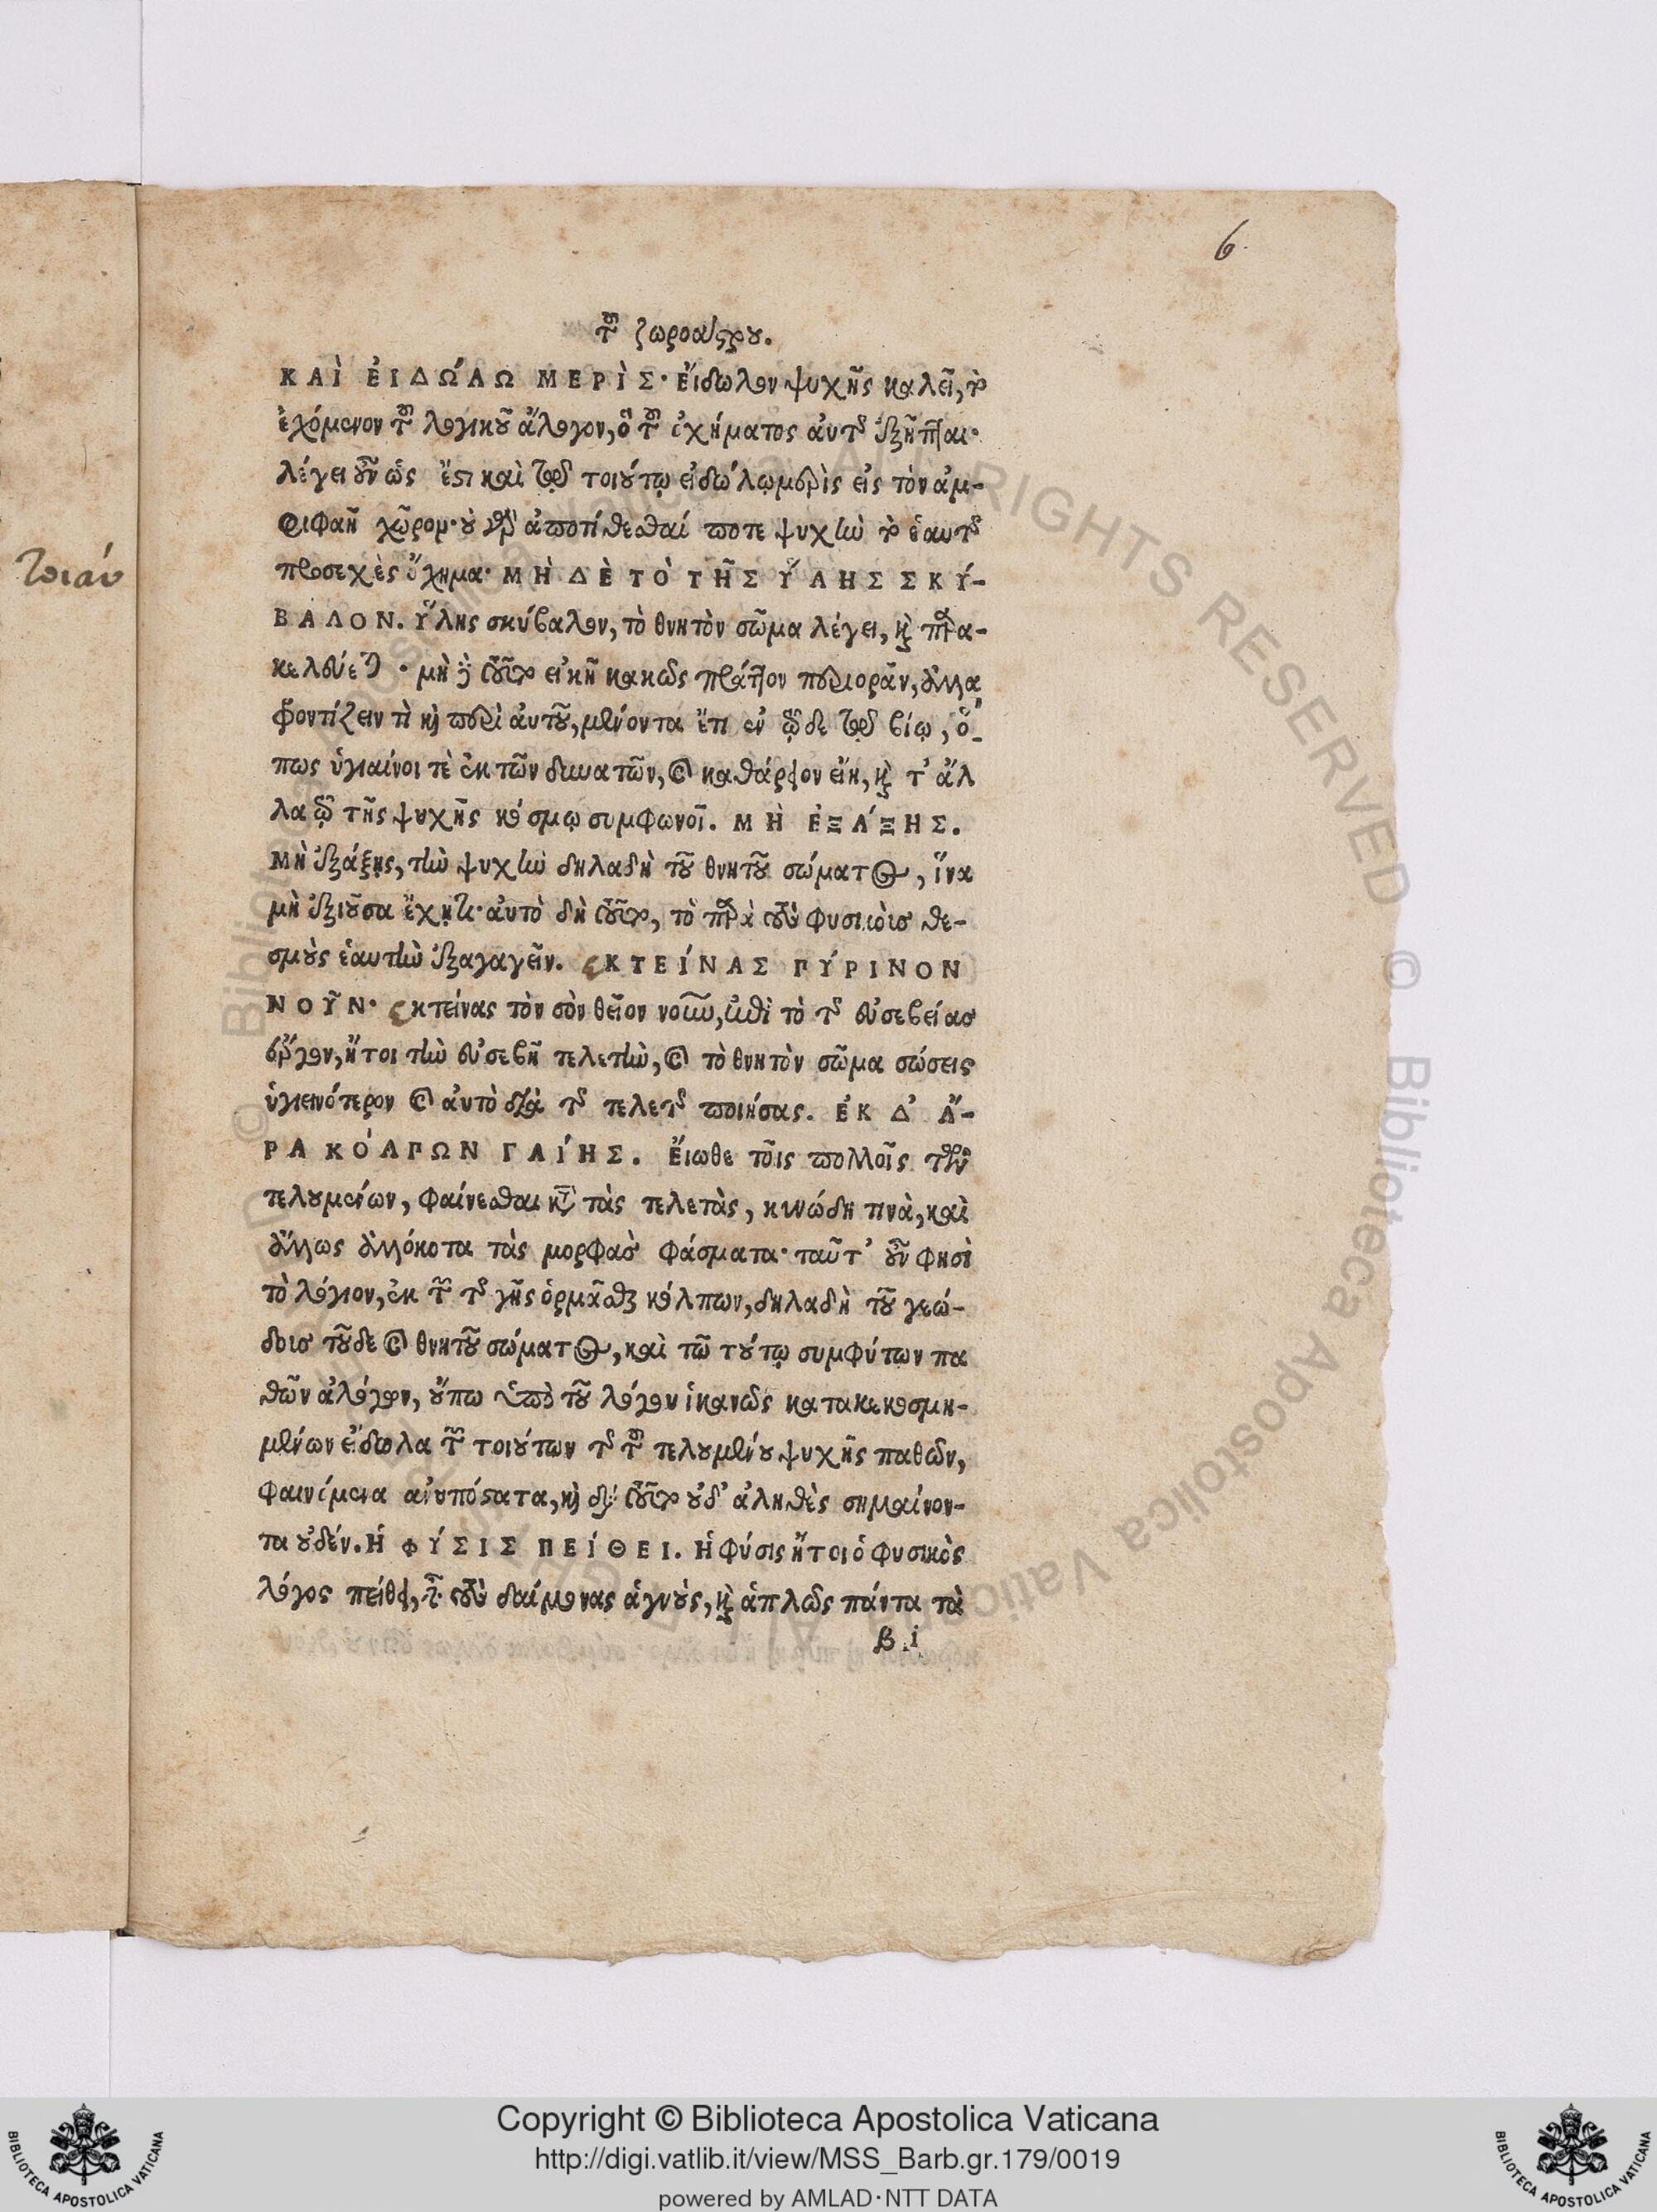 6
τοῦ ζωροάστρου.
ΚΑῚ ἘΙΔΏΛΩ ΜΕΡῚΣ· εἴδωλον ψυχῆς καλεῖ, τὸ
ἐχόμενον τοῦ λογικοῦ ἄλογον, ὃ τοῦ ὀχήματος ἀυτῆς ἐξῆπται·
λέγει οὖν ὡς ἔστι καὶ τῷ τοιούτῳ εἰδώλῳ μερὶς εἰς τὸν ἀμ-
φιφαῆ χῶρον· οὐ γὰρ ἀποτίθεσθαί ποτε ψυχὴν τὸ ἑαυτῆς
προσεχὲς ὄχημα· ΜῊ ΔῈ ΤΌ ΤΗ͂Σ ὝΛΗΣ ΣΚΎ-
ΒΑΛΟΝ. ὕλης σκύβαλον, τὸ θνητὸν σῶμα λέγει, καὶ παρα-
κελεύεται · μὴ δὲ τοῦτο εἰκῆ κακῶς πράττον περιορᾶν, ἀλλὰ
φροντίζειν τὶ καὶ περὶ ἀυτοῦ, μένοντα ἔτι ἐν τῷδε τῷ βίῳ, ὅ-
πως ὑγιαίνοι τὲ ἐκ τῶν δυνατῶν, καὶ καθάρειον εἴη, καὶ τ' ἄλ
λα τῷ τῆς ψυχῆς κόσμῳ συμφωνοῖ. ΜῊ ἘΞΆΞΗΣ.
Μὴ ἐξάξῃς, τὴν ψυχὴν δηλαδὴ τοῦ θνητοῦ σώματος, ἵνα
μὴ ἐξιοῦσα ἔχῃ τι· ἀυτὸ δὴ τοῦτο, τὸ παρὰ τοὺς φυσικοὺς θε-
σμοὺς ἑαυτὴν ἐξαγαγεῖν. ΚΤΕΊΝΑΣ ΠΎΡΙΝΟΝ
ΝΟΥ͂Ν· κτείνας τὸν σὸν θεῖον νοῦν, ἐπὶ τὸ τῆς εὐσεβείας
ἔργον, ἤτοι τὴν εὐσεβῆ τελετὴν, καὶ τὸ θνητὸν σῶμα σώσεις
ὑγιεινότερον καὶ ἀυτὸ διὰ τῆς τελετῆς ποιήσας. ἘΚ Δ' Ἄ-
ΡΑ ΚΌΛΠΩΝ ΓΑΊΗΣ. Ἔιωθε τοῖς πολλοῖς τῶν
τελουμένων, φαίνεσθαι κατὰ τὰς τελετὰς, κυνώδη τινὰ, καὶ
ἄλλως ἀλλόκοτα τὰς μορφὰς φάσματα· ταῦτ' οὖν φησὶ
τὸ λόγιον, ἐκ τῶν τῆς γῆς ὁρμᾶσθαι κόλπων, δηλαδὴ τοῦ γεώ-
δους τοῦδε καὶ θνητοῦ σώματος, καὶ τῶν τούτῳ συμφύτων πα
θῶν ἀλόγων, οὔπω ὑπὸ τοῦ λόγου ἱκανῶς κατακεκοσμη-
μένων εἴδωλα τῶν τοιούτων τῆς τοῦ τελουμένου ψυχῆς παθῶν,
φαινόμενα ἀνυπόστατα, καὶ διὰ τοῦτο οὐδ' ἀληθὲς σημαίνον-
τα οὐδέν. Ἡ ΦΎΣΙΣ ΠΕΊΘΕΙ. Ἡ φύσις ἤτοι ὁ φυσικὸς
λόγος πείθει, εἶναι τοὺς δαίμονας ἁγνοὺς, καὶ ἁπλῶς πάντα τὰ
β i
Copyright © Biblioteca Apostolica Vaticana
http://digi.vatlib.it/view/MSS_Barb.gr.179/0019
powered by AMLAD·NTT DATA
BIBLIOTECA APOSTOLICA VATICANA
BIBLIOTECA APOSTOLICA VATICANA